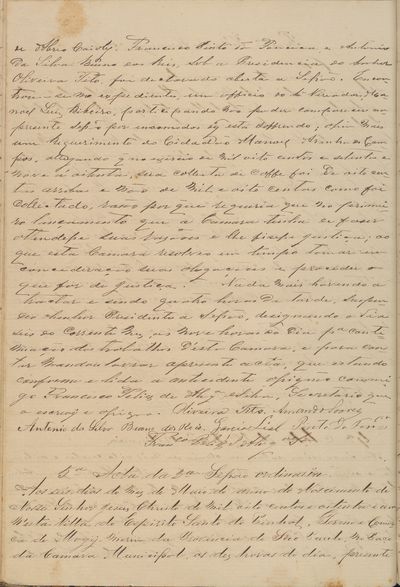 de Abreu Cardoz. Francisco Pinto de Ferreira, e Antonio
da Silva Bueno dos Reis, sob a Presidencia do Senhor
Oliveira Tito, foi declarada aberta a Sessão. Encon
trou-se no expediente, um officio do Vereador, Ma
noel Luiz Ribeiro, participando não poder comparecer na
presente Sessão por incommodos q' está soffrendo;
um Requerimento do Cidadão Manoel de Cam
pos, allegando q' no exercicio de Mil oito centos e oitenta e
nove a oitenta, sua colheita de Caffe foi de oito cen
tas arrobas e não de Mil e oito centas como foi
collectado, razão por que requeria que no proximo
lançamento que a Camara tenha de fazer
attendesse suas razões e lhe fizesse justiça; ao
que esta Camara resolveu em tempo tomar em
consideração suas allegações e proceder o
que for de justiça. Nada mais havendo a
tractar e sendo quatro horas da tarde, suspen
deo o Senhor Presidente a Sessão, designando o dia
seis do corrente Mez, as nove horas do Dia pª conti
nuação dos trabalhos desta Camara, e para cons
tar mandou lavrar a presente acta, que estando
conforme e lida a antecedente assignão comi
go Francisco Feliz de Silva, Secretario que
o escrevi e assigno. Oliveira Tito.
Antonio da Silva Bueno dos Reis. Garcia Leal Pinto de Ferrª
Franco Feliz
5ª Acta da 2ª Sessão ordinaria
Aos seis dias do Mez de Maio do anno do Nascimento de
Nosso Senhor Jesus Christo de Mil oito centos e oitenta e um
Nesta Villa do Espirito Santo do Pinhal, Termo e Comar
ca de Mogy Mirim da Provincia de São Paulo, No Paço
da Camara Municipal, as dez horas do dia, presente